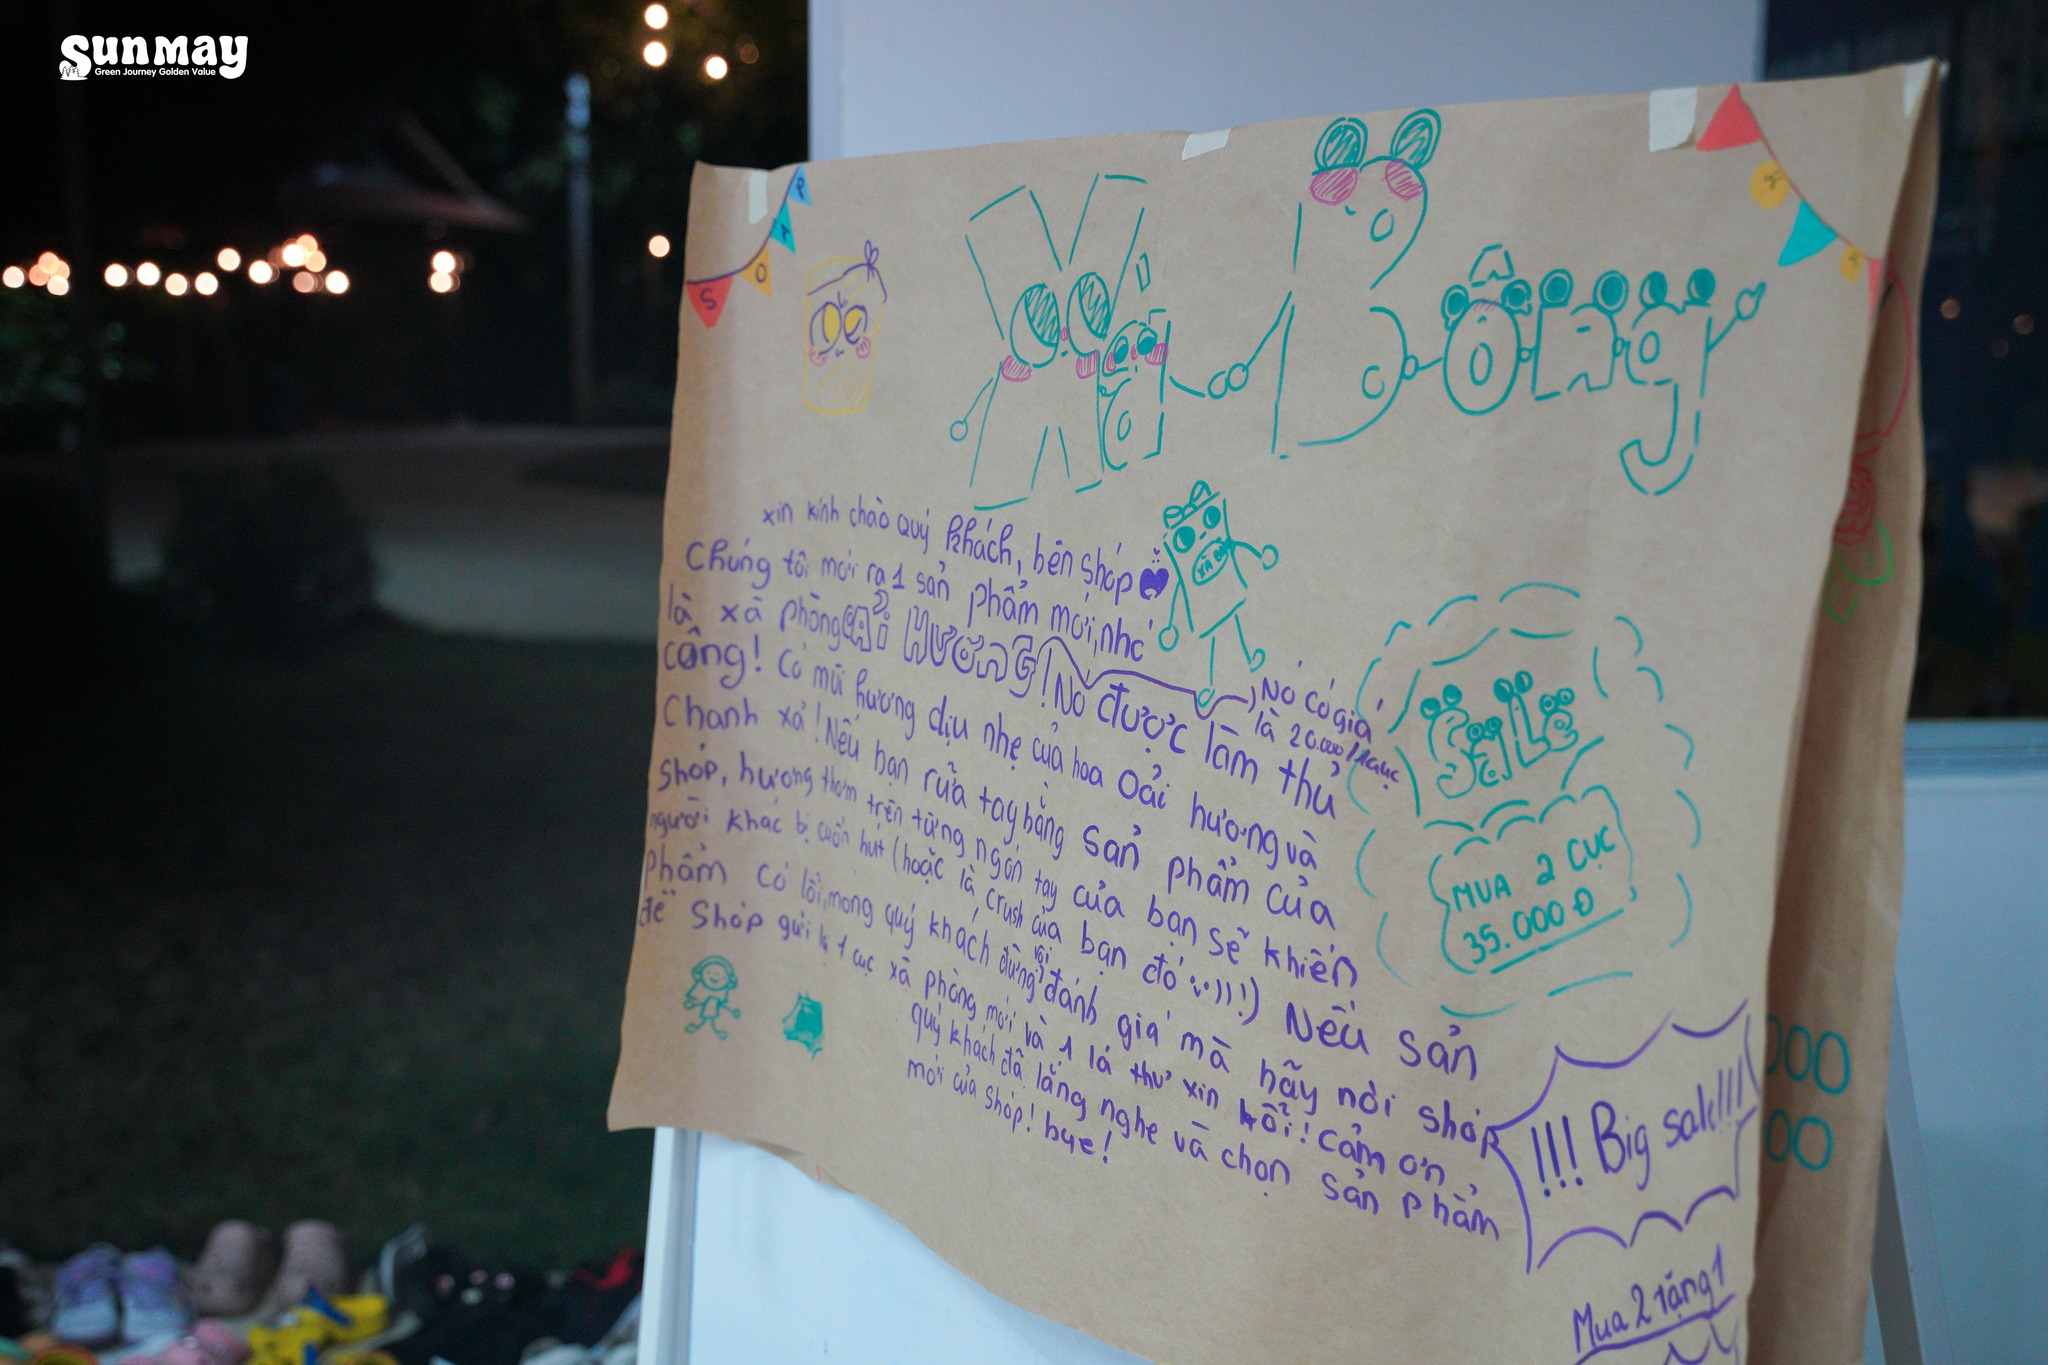 Sunmay
Green Journey Golden Value
Xà Bông
xin kính chào quý khách, bên shóp
Chúng tôi mới ra 1 sản phẩm mới, nhớ
là xà phòng ẢI HƯƠNG! Nó được làm thủ
công! Có mùi hương dịu nhẹ của hoa Oải hương và
Chanh xả! Nếu bạn rửa tay bằng sản phẩm của
shóp, hương thơm trên từng ngón tay của bạn sẽ khiến
người khác bị cuốn hút (hoặc là crush của bạn đó :)))!) Nếu sản
phẩm có lỗi, mong quý khách đừng vội đánh giá mà hãy nói shóp
để shóp gửi lại 1 cục xà phòng mới và 1 lá thư xin lỗi! Cảm ơn
quý khách đã lắng nghe và chọn sản phẩm
mới của shóp! bye!
XÀ
Nó có giá
là 20.000/1cục
SALE
MUA 2 CỤC
35.000 Đ
!!! Big sale!!!
Mua 2 tặng 1
000
00